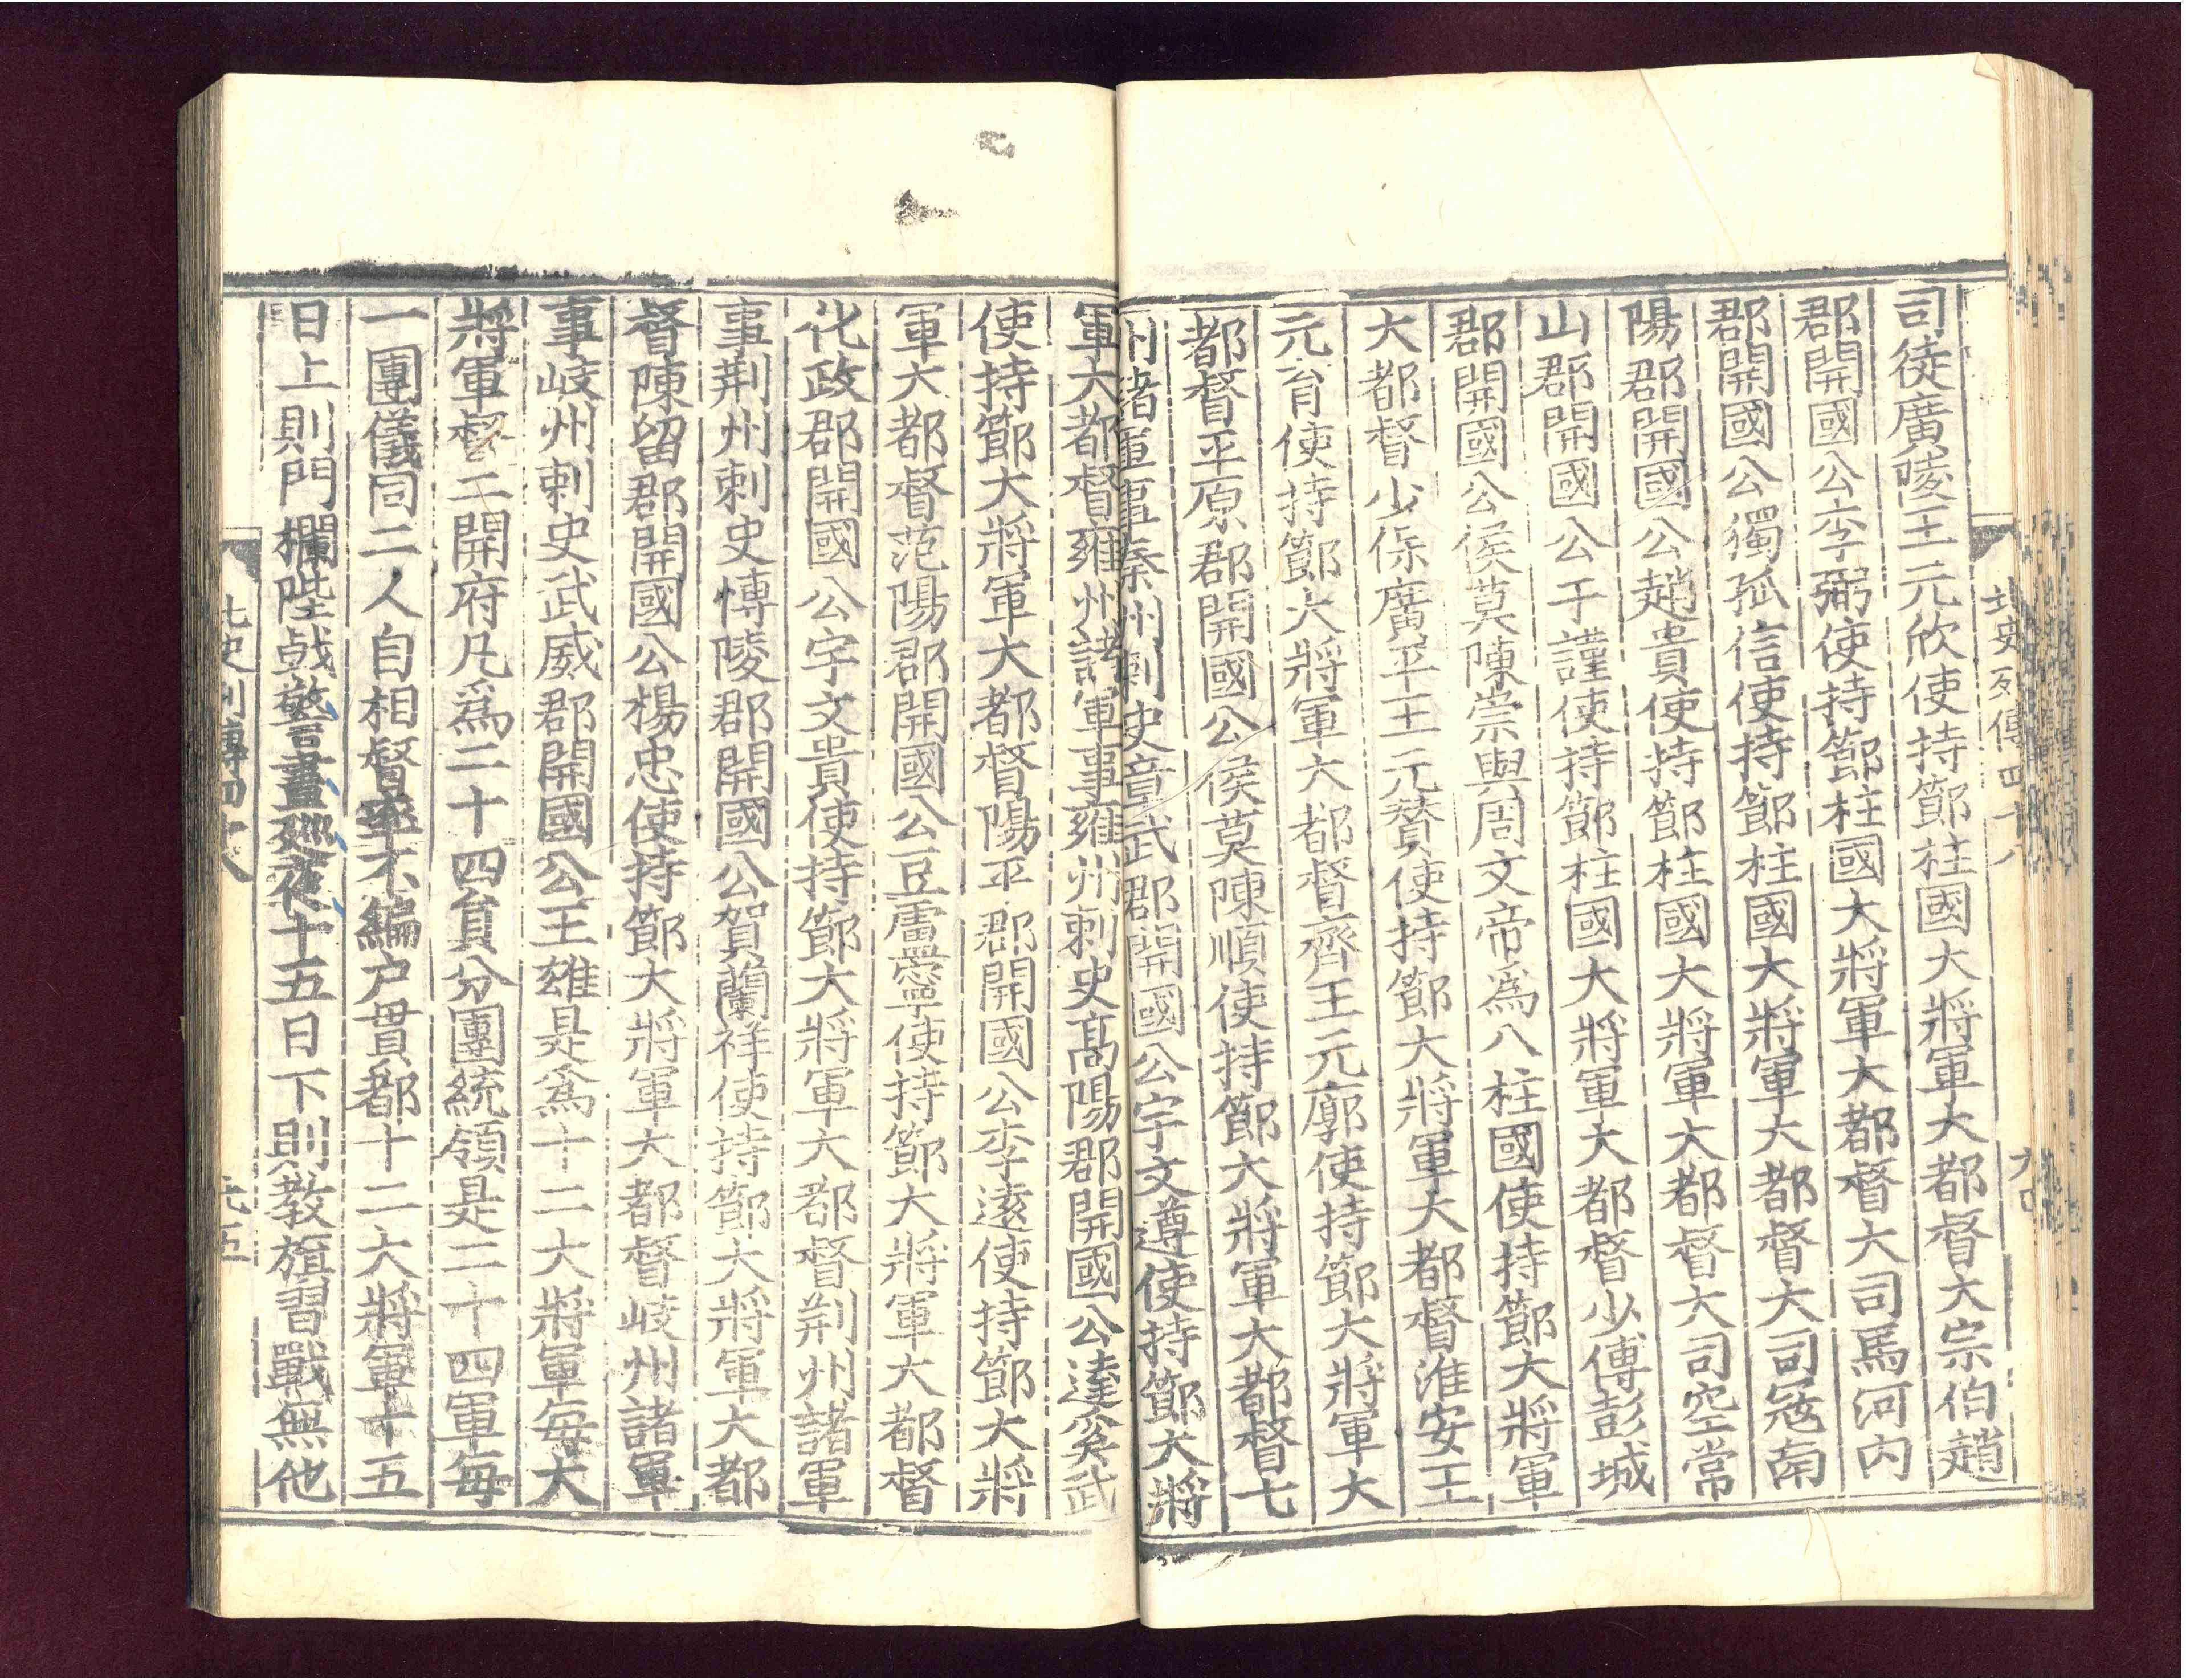 北史列傳四十八
六四
司徒廣陵王元欣使持節柱國大將軍大都督大宗伯趙
郡開國公李弼使持節柱國大將軍大都督大司馬河內
郡開國公獨孤信使持節柱國大將軍大都督大司寇南
陽郡開國公趙貴使持節柱國大將軍大都督大司空常
山郡開國公于謹使持節柱國大將軍大都督少傅彭城
郡開國公侯莫陳崇與周文帝爲八柱國使持節大將軍
大都督少保廣平王元贊使持節大將軍大都督淮安王
元育使持節大將軍大都督齊王元廓使持節大將軍大
都督平原郡開國公侯莫陳順使持節大將軍大都督七
州諸軍事秦州刺史章武郡開國公宇文遵使持節大將
軍大都督雍州諸軍事雍州刺史高陽郡開國公達奚武
使持節大將軍大都督陽平郡開國公李遠使持節大將
軍大都督范陽郡開國公豆盧寧使持節大將軍大都督
化政郡開國公宇文貴使持節大將軍大都督荆州諸軍
事荆州刺史博陵郡開國公賀蘭祥使持節大將軍大都
督陳留郡開國公楊忠使持節大將軍大都督岐州諸軍
事岐州刺史武威郡開國公王雄是爲十二大將軍每大
將軍督二開府凡爲二十四員分團統領是二十四軍每
一團儀同二人自相督率不編户貫都十二大將軍十五
日上則門欄陛戟警晝廵夜十五日下則教旗習戰無他
北史列傳四十八
六五